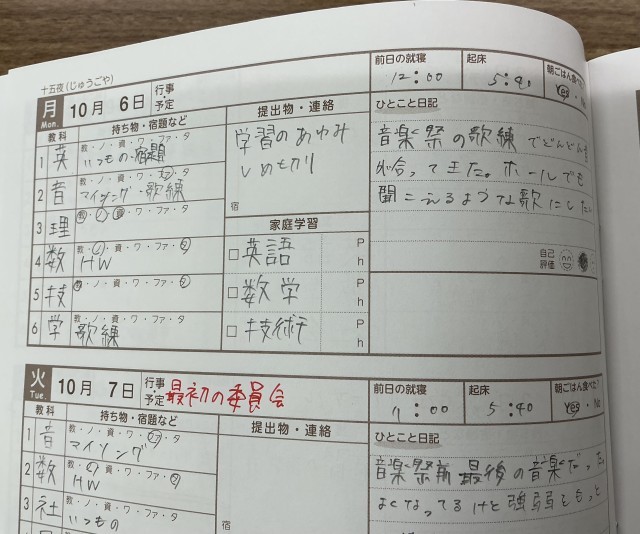 十五夜(じゅうごや)
月 Mon. 10月 6日 行事予定 前日の就寝 12:00 起床 5:40 朝ごはん食べた? Yes・No
教科 持ち物・宿題など 提出物・連絡 ひとこと日記
1 英 教・ノ・資・ワ・ファ・タ
いつもの・宿題
2 音 教・ノ・資・ワ・ファ・タ
マイソング・歌練
3 理 教・ノ・資・ワ・ファ・タ
4 数 教・ノ・資・ワ・ファ・タ
HW
5 技 教・ノ・資・ワ・ファ・タ
6 学 教・ノ・資・ワ・ファ・タ
歌練
学習のあゆみ
しめきり
宿
家庭学習
□英語 P h
□数学 P h
□技術 P h
音楽祭の歌練でどんどん
が合ってきた。ホールでも
聞こえるような歌にした
自己評価
火 Tue. 10月 7日 行事予定 最初の委員会 前日の就寝 11:00 起床 5:40 朝ごはん食べた? Yes・No
教科 持ち物・宿題など 提出物・連絡 ひとこと日記
1 音 教・ノ・資・ワ・ファ・タ
マイソング
2 数 教・ノ・資・ワ・ファ・タ
HW
3 社 教・ノ・資・ワ・ファ・タ
いつもの
宿
音楽祭前最後の音楽だった
よくなってるけど強弱をもっと